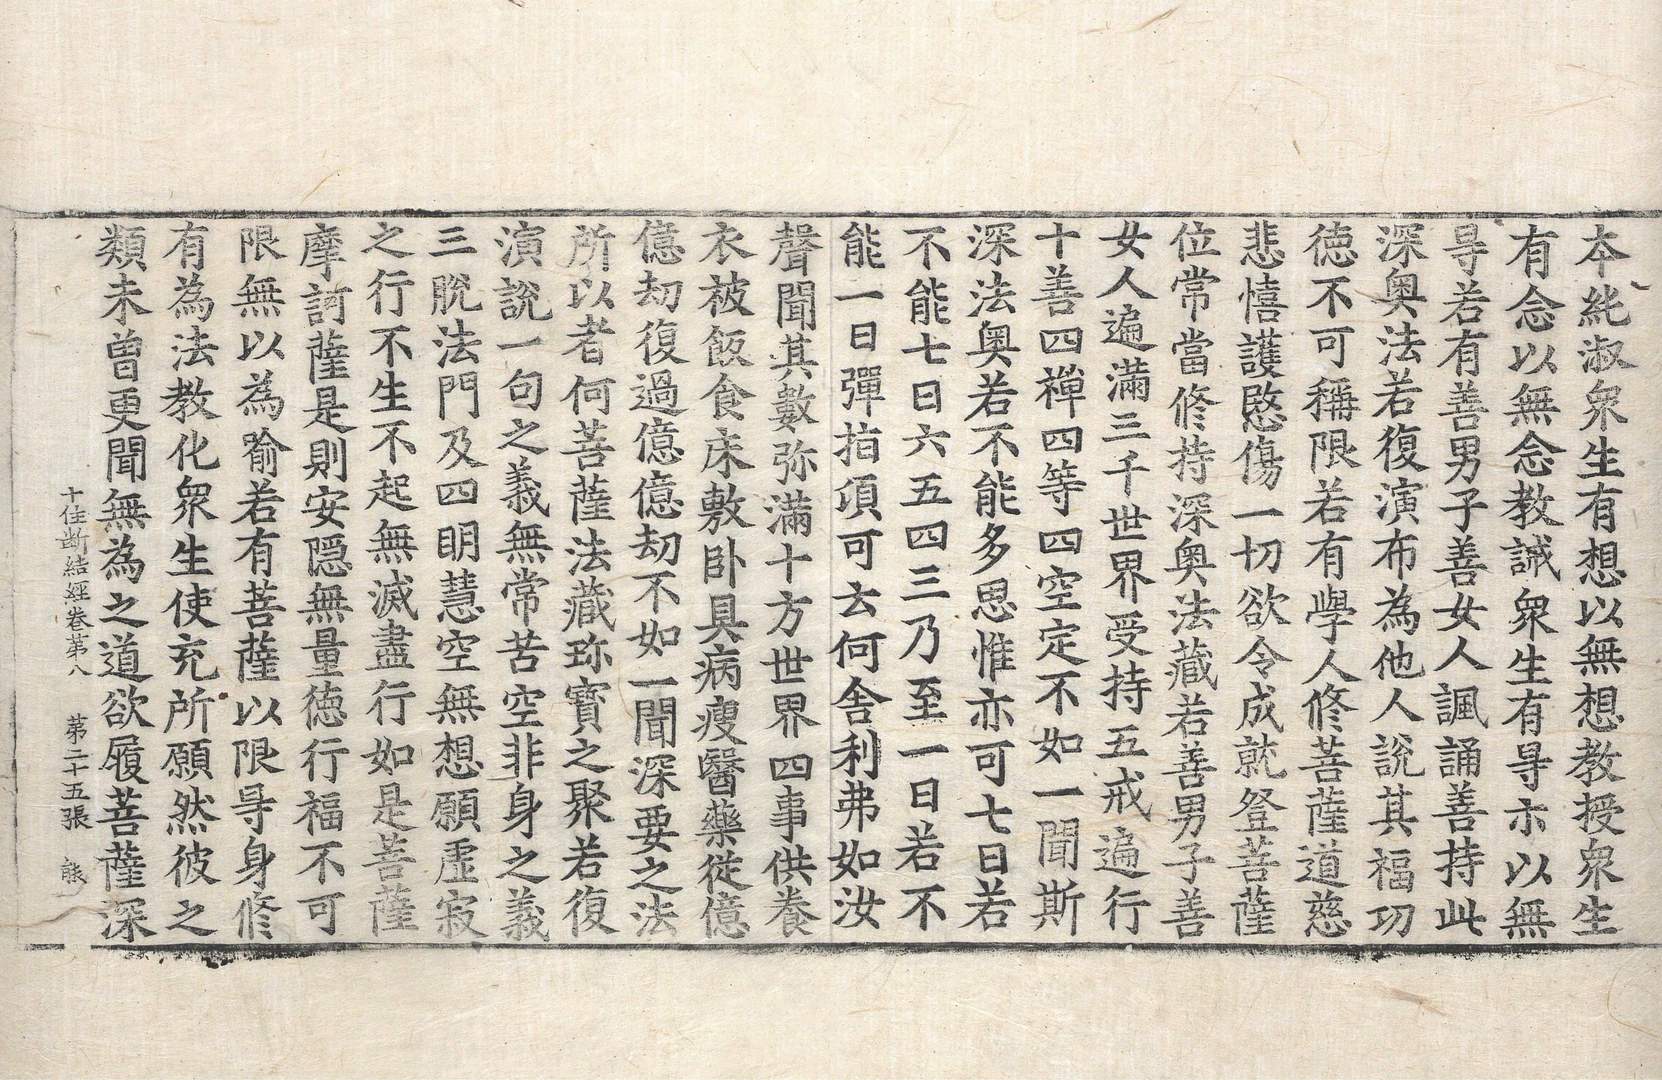 夲純淑衆生有想以無想教授衆生
有念以無念教誡衆生有㝵亦以無
㝵若有善男子善女人諷誦善持此
深奧法若復演布為他人說其福功
德不可稱限若有學人修菩薩道慈
悲憘護愍傷一切欲令成就登菩薩
位常當修持深奧法藏若善男子善
女人遍滿三千世界受持五戒遍行
十善四禪四等四空定不如一聞斯
深法奧若不能多思惟亦可七日若
不能七日六五四三乃至一日若不
能一日彈指頃可去何舍利弗如汝
聲聞其數弥滿十方世界四事供養
衣被飯食床敷卧具病瘦醫藥從億
億劫復過億億劫不如一聞深要之法
所以者何菩薩法藏珎寶之聚若復
演說一句之義無常苦空非身之義
三脫法門及四明慧空無想願虛寂
之行不生不起無滅盡行如是菩薩
摩訶薩是則安隱無量德行福不可
限無以為喻若有菩薩以限㝵身修
有為法教化衆生使充所願然彼之
類未曾更聞無為之道欲履菩薩深
十住斷結經卷第八 第二十五張